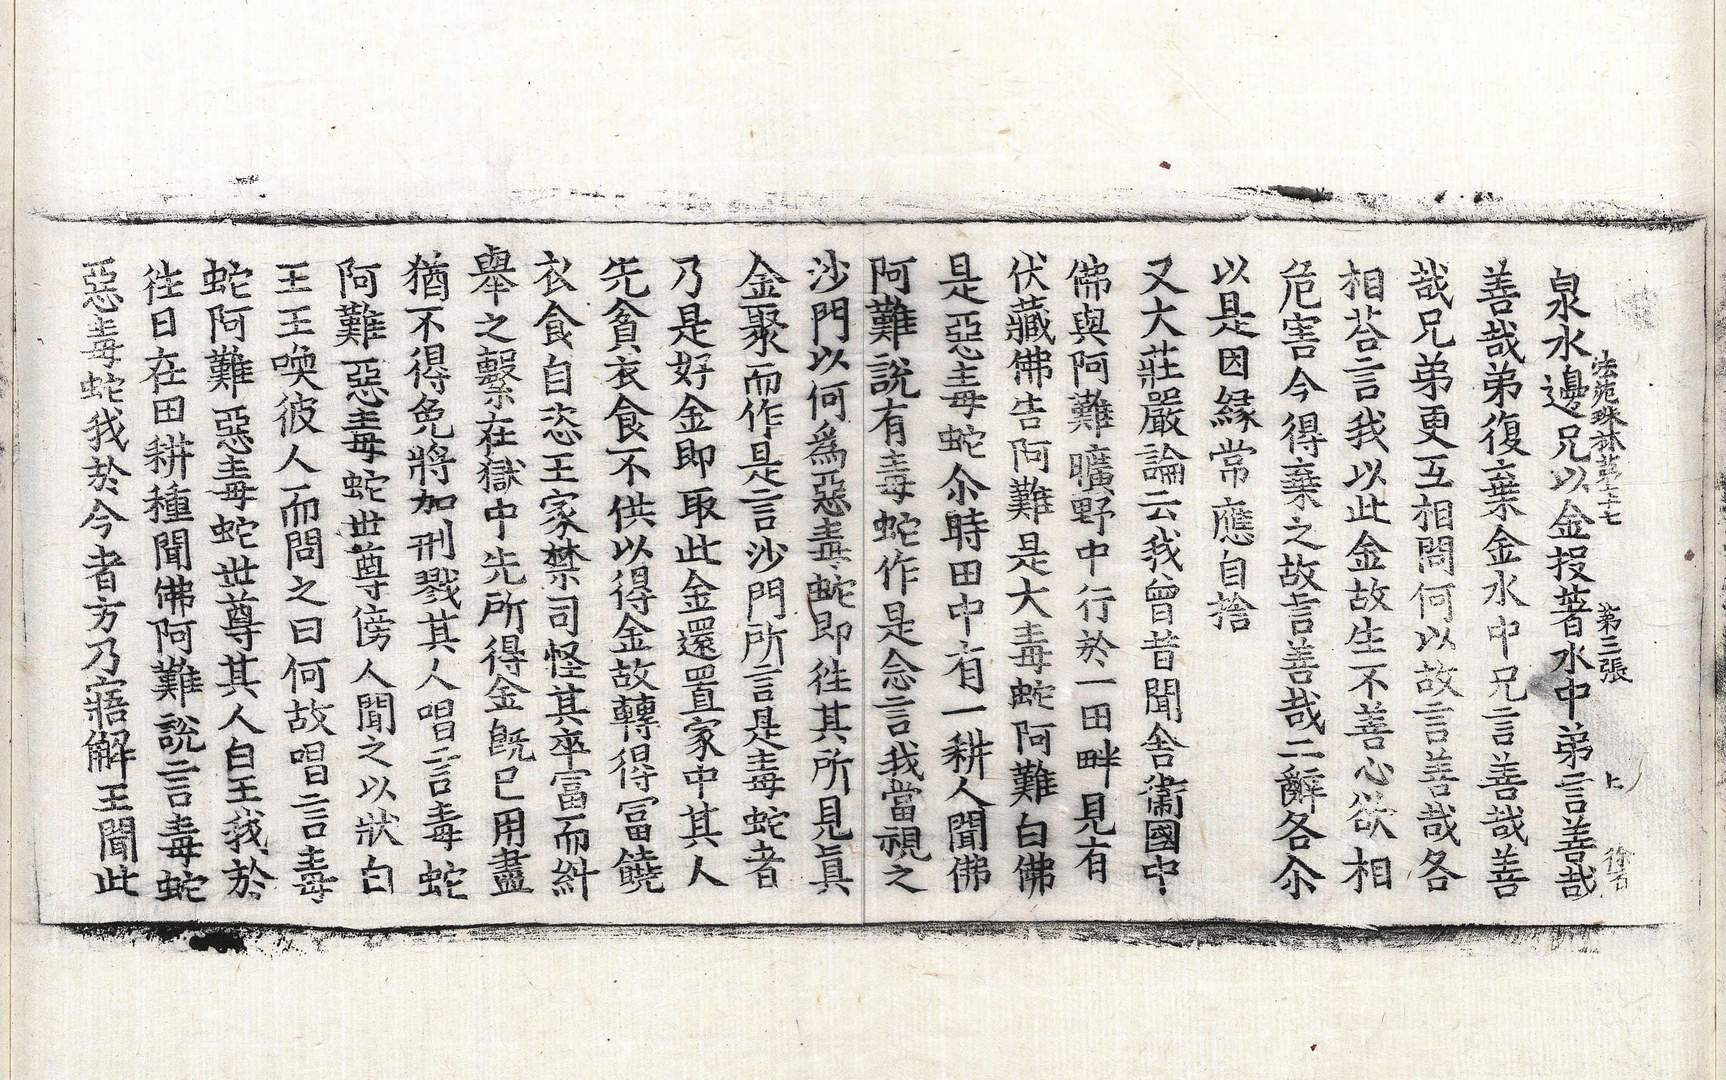 法苑珠林苐七十七　苐三張　上
泉水邊兄以金投著水中弟言善哉
善哉弟復棄金水中兄言善哉善
哉兄弟更互相問何以故言善哉各
相荅言我以此金故生不善心欲相
危害今得棄之故言善哉二辭各尒
以是因緣常應自捨
又大莊嚴論云我曾昔聞舍衛國中
佛與阿難曠野中行於一田畔見有
伏藏佛告阿難是大毒蛇阿難白佛
是惡毒蛇尒時田中有一耕人聞佛
阿難說有毒蛇作是念言我當視之
沙門以何爲惡毒蛇即徃其所見真
金聚而作是言沙門所言是毒蛇者
乃是好金即取此金還置家中其人
先貧衣食不供以得金故轉得冨饒
衣食自恣王家禁司怪其卒冨而糾
舉之繫在獄中先所得金旣已用盡
猶不得免將加刑戮其人唱言毒蛇
阿難惡毒蛇世尊傍人聞之以狀白
王王喚彼人而問之曰何故唱言毒
蛇阿難惡毒蛇世尊其人白王我於
徃日在田耕種聞佛阿難說言毒蛇
惡毒蛇我於今者方乃寤解王聞此